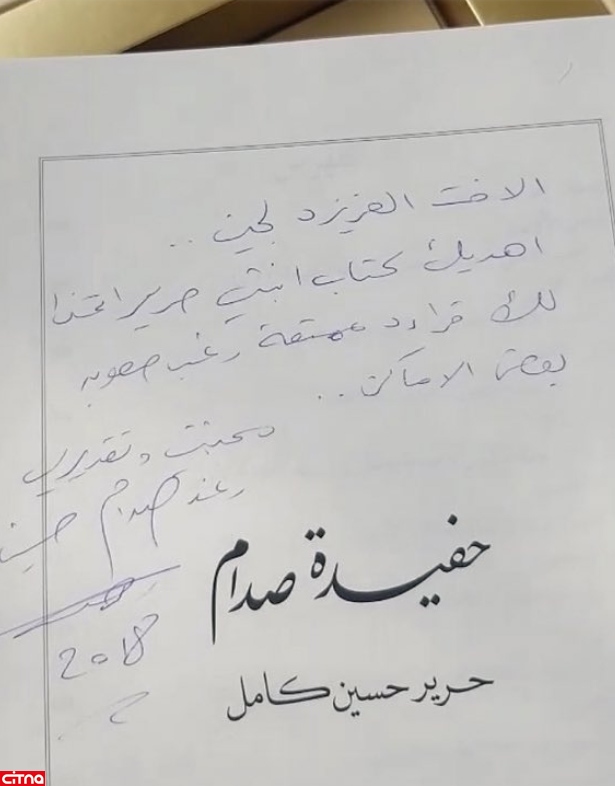 الاخت العزيزة لجين ..
اهديك كتاب ابنتي حرير اتمنا
لك قراءة ممتعة رغم صعوبة
بعض الاماكن ..
محبتي وتقديري
رغد صدام حسين
2018
حفيدة صدام
حرير حسين كامل
citna